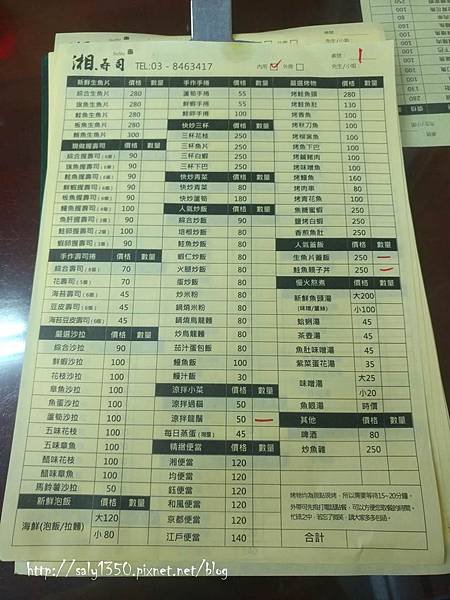 湘壽司
TEL:03 - 8463417
內用 外帶
桌號 1
先生/小姐
新鮮生魚片 價格 數量
綜合生魚片 280
旗魚生魚片 280
鮭魚生魚片 280
板魚生魚片 280
鮪魚生魚片 300
價格 數量
綜合握壽司 90
旗魚握壽司 90
鮭魚握壽司 90
鮮蝦握壽司 90
板魚握壽司 90
鰻魚握壽司 90
魚肝握壽司 90
鮭卵握壽司 90
蝦卵握壽司 90
手作壽司捲 價格 數量
綜合壽司 70
花壽司 70
海苔壽司 45
豆皮壽司 45
海苔豆皮壽司 45
嚴選沙拉 價格 數量
綜合沙拉 90
鮮蝦沙拉 100
花枝沙拉 100
章魚沙拉 100
魚蛋沙拉 100
蘆筍沙拉 100
五味花枝 100
五味章魚 100
醋味花枝 100
醋味章魚 100
馬鈴薯沙拉 50
新鮮泡飯 價格 數量
海鮮(泡飯/拉麵) 大120
小 80
手作手捲 價格 數量
蘆筍手捲 55
鮮蝦手捲 55
鮭卵手捲 100
快炒三杯 價格 數量
三杯花枝 250
三杯魚片 250
三杯白蝦 250
三杯下巴 250
快炒青菜 價格 數量
快炒青菜 80
快炒蘆筍 180
人氣炒飯 價格 數量
綜合炒飯 80
培根炒飯 80
鮭魚炒飯 80
蝦仁炒飯 80
火腿炒飯 80
蛋炒飯 80
炒米粉 80
鍋燒米粉 80
鍋燒烏龍麵 80
炒烏龍麵 80
茄汁蛋包飯 80
鰻魚飯 100
鰻汁飯 30
涼拌小菜 價格 數量
涼拌過貓 50
涼拌龍鬚 50
每日蒸蛋 45
精緻便當 價格 數量
湘便當 120
均便當 120
鈺便當 120
和風便當 120
京都便當 120
江戶便當 140
嚴選烤物 價格 數量
烤鮭魚頭 280
烤鮭魚肚 130
烤香魚 100
烤秋刀魚 100
烤柳葉魚 100
烤魚下巴 100
烤鹹豬肉 100
烤味噌魚 100
烤鰻魚 160
烤肉串 80
烤青花魚 100
焦糖蜜蝦 250
鹽烤白蝦 250
香煎魚肚 250
人氣蓋飯 價格 數量
生魚片蓋飯 250
鮭魚親子丼 250
慢火熬煮 價格 數量
新鮮魚頭湯 大200
(味噌/薑絲) 小100
蛤蜊湯 45
茶壺湯 45
魚肚味噌湯 45
紫菜蛋花湯 35
味噌湯 大25
小20
魚眼湯 時價
其他 價格 數量
啤酒 80
炒魚雜 250
烤物均為現點現烤，所以需要等待15~20分鐘。
外帶可先撥打電話點餐，可以方便您取餐的時間。
忙碌之中，若忘了微笑，請大家多多包涵。
合計
http://saly1350.pixnet.net/blog